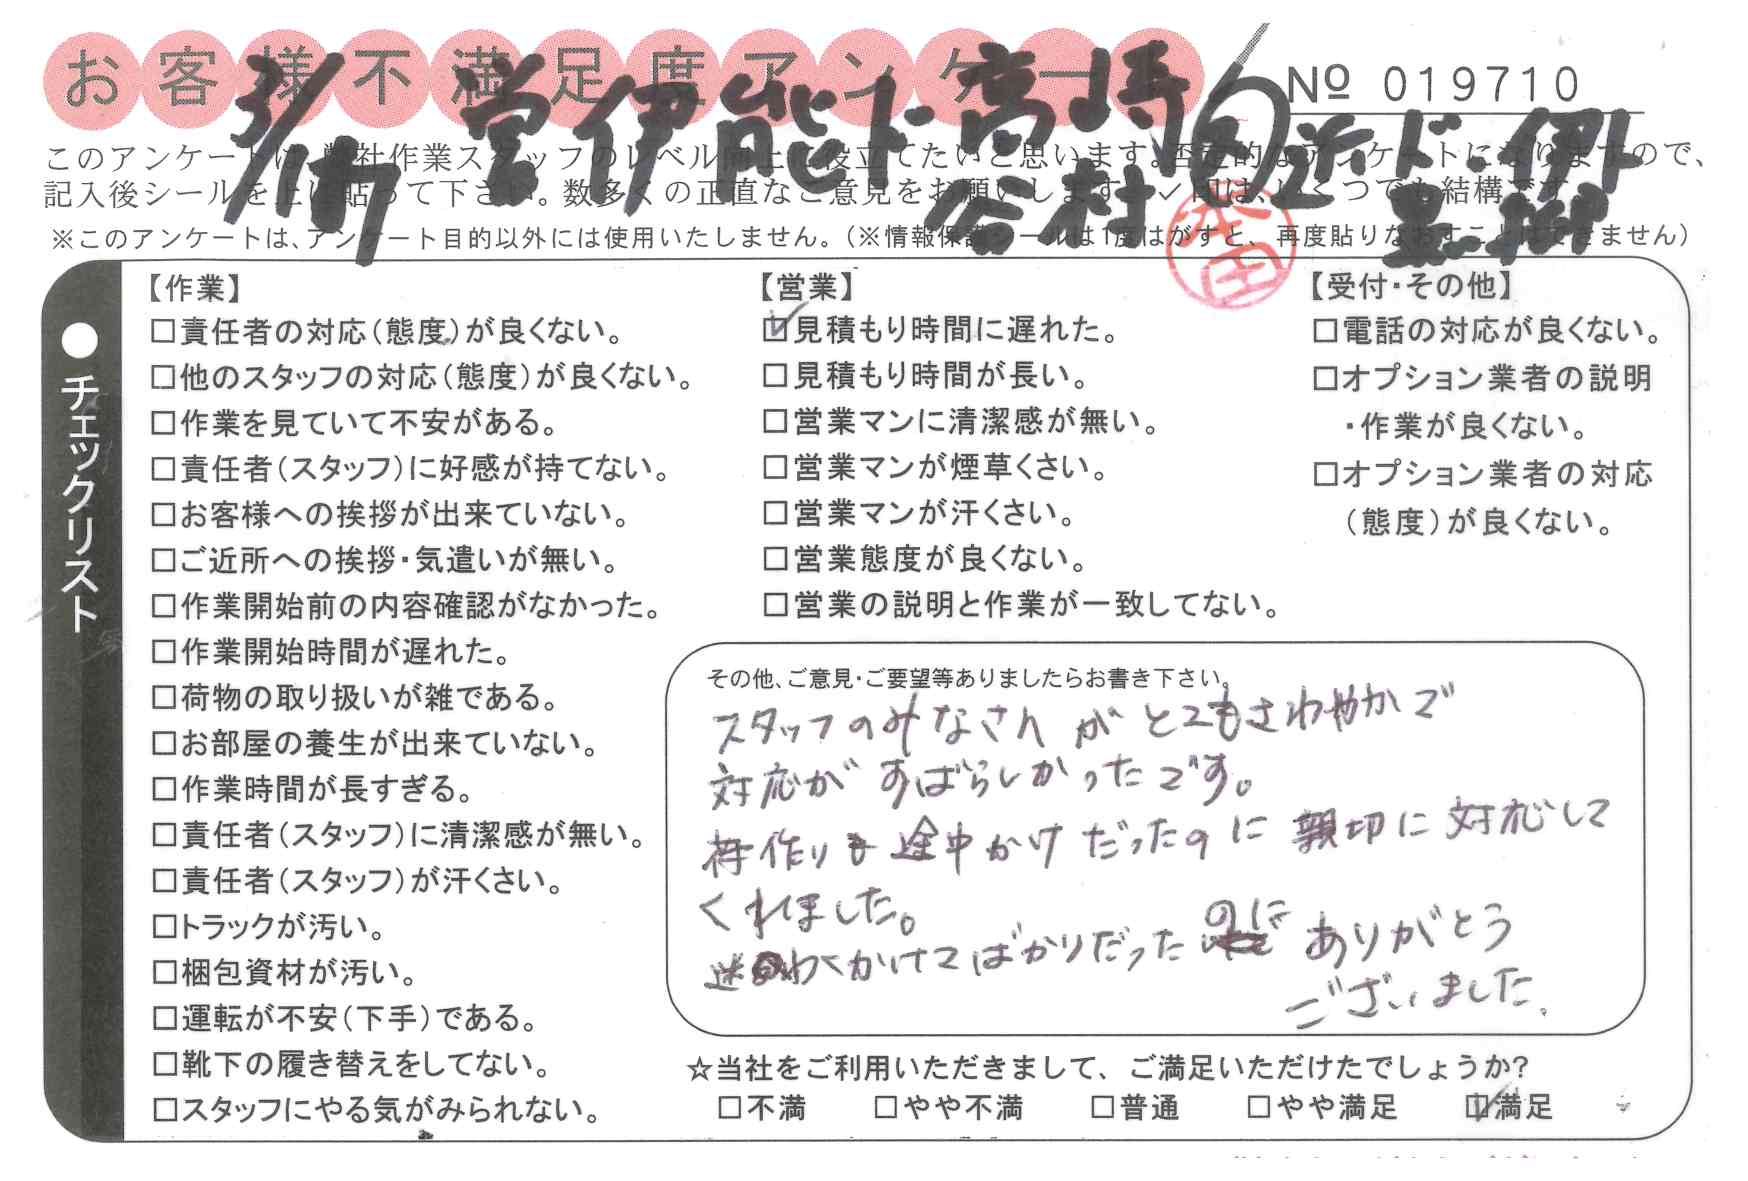 お客様不満足度アンケート
№ 019710
営 伊能 ド 高崎
谷村
このアンケートは、弊社作業スタッフのレベル向上に役立てたいと思います。否定的なアンケートになりますので、
記入後シールを上に貼って下さい。数多くの正直なご意見をお願いします。✓印は、いくつでも結構です。
※このアンケートは、アンケート目的以外には使用いたしません。（※情報保護シールは1度はがすと、再度貼りなおすことはできません）
本田
●チェックリスト
【作業】
□責任者の対応（態度）が良くない。
□他のスタッフの対応（態度）が良くない。
□作業を見ていて不安がある。
□責任者（スタッフ）に好感が持てない。
□お客様への挨拶が出来ていない。
□ご近所への挨拶・気遣いが無い。
□作業開始前の内容確認がなかった。
□作業開始時間が遅れた。
□荷物の取り扱いが雑である。
□お部屋の養生が出来ていない。
□作業時間が長すぎる。
□責任者（スタッフ）に清潔感が無い。
□責任者（スタッフ）が汗くさい。
□トラックが汚い。
□梱包資材が汚い。
□運転が不安（下手）である。
□靴下の履き替えをしてない。
□スタッフにやる気がみられない。
【営業】
☑見積もり時間に遅れた。
□見積もり時間が長い。
□営業マンに清潔感が無い。
□営業マンが煙草くさい。
□営業マンが汗くさい。
□営業態度が良くない。
□営業の説明と作業が一致してない。
【受付・その他】
□電話の対応が良くない。
□オプション業者の説明
・作業が良くない。
□オプション業者の対応
（態度）が良くない。
その他、ご意見・ご要望等ありましたらお書き下さい。
スタッフのみなさんがとてもさわやかで
対応がすばらしかったです。
荷作りも途中かけだったのに親切に対応して
くれました。
迷わくかけてばかりだったのにありがとう
ございました。
☆当社をご利用いただきまして、ご満足いただけたでしょうか?
□不満 □やや不満 □普通 □やや満足 ☑満足